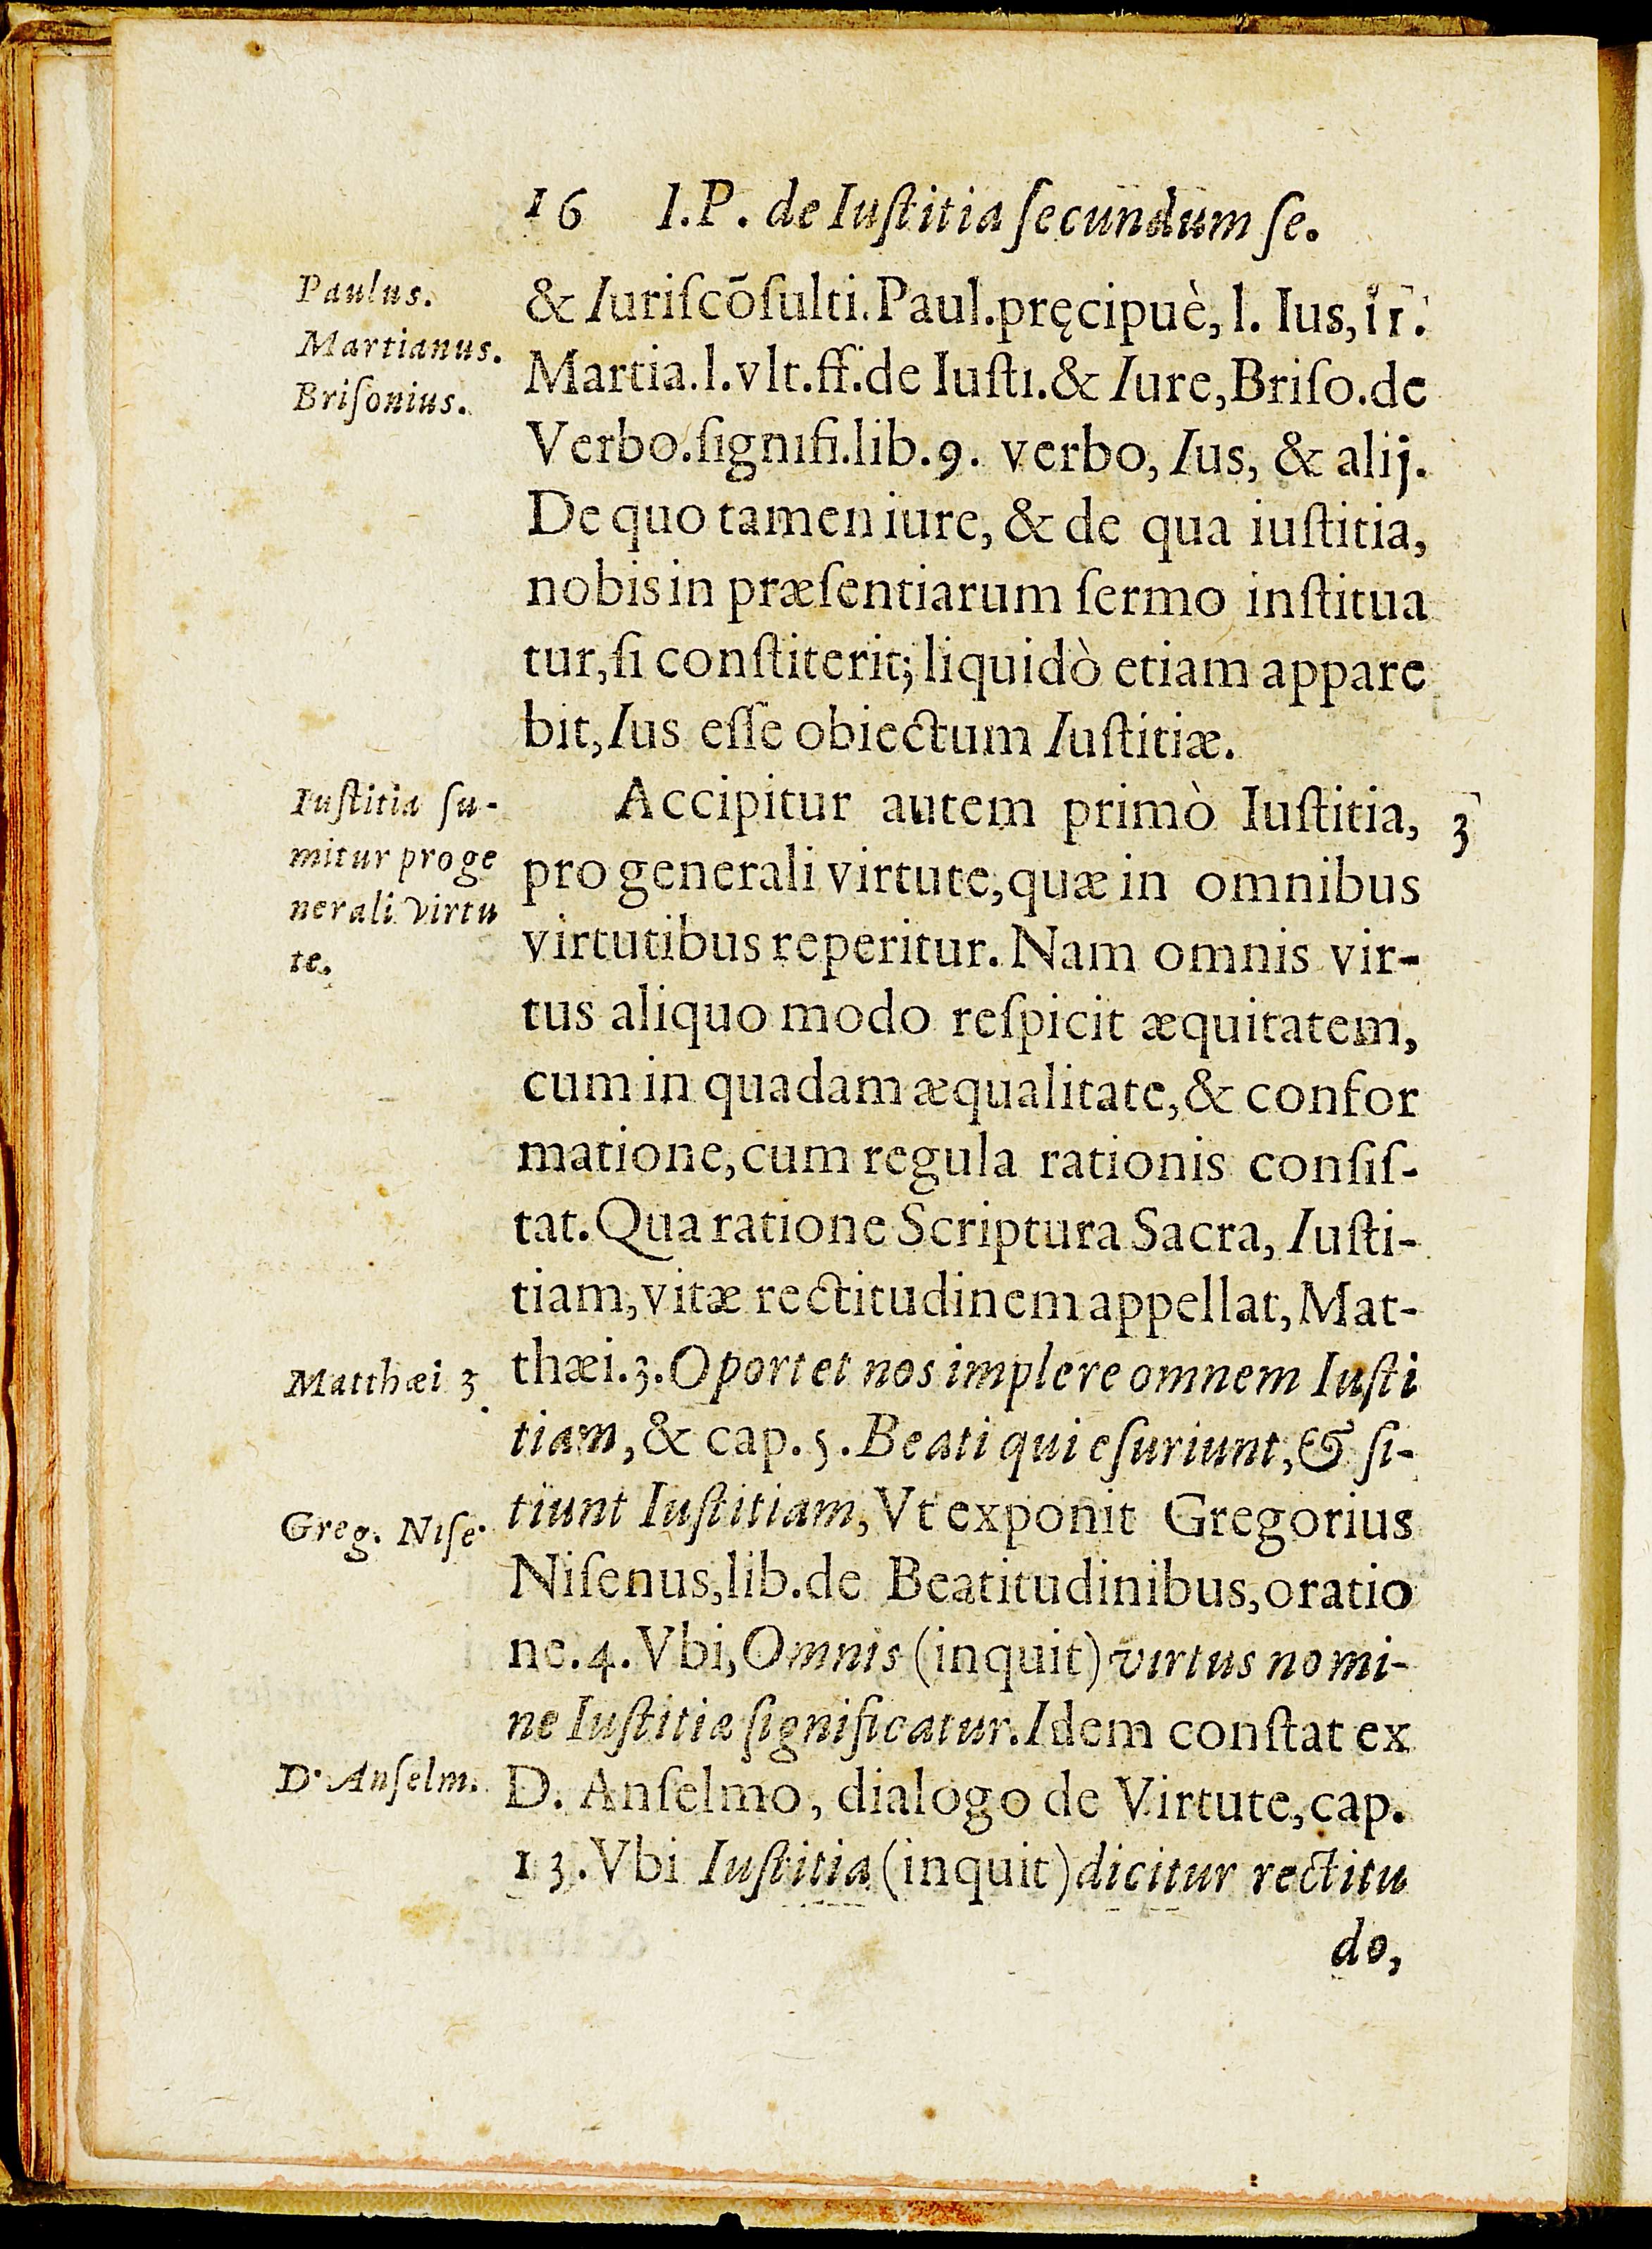 16 I.P. de Iuſtitia ſecundum ſe.
Paulus.
Martianus.
Briſonius.
& Iuriſcōſulti. Paul. pręcipuè, l. Ius, 11.
Martia. l. vlt. ff. de Iuſti. & Iure, Briſo. de
Verbo. ſignifi. lib. 9. verbo, Ius, & alij.
De quo tamen iure, & de qua iuſtitia,
nobis in præſentiarum ſermo inſtitua
tur, ſi conſtiterit; liquidò etiam appare
bit, Ius eſſe obiectum Iuſtitiæ.
Iuſtitia ſu-
mitur pro ge
nerali virtu
te.
Accipitur autem primò Iuſtitia, 3
pro generali virtute, quæ in omnibus
virtutibus reperitur. Nam omnis vir-
tus aliquo modo reſpicit æquitatem,
cum in quadam æqualitate, & confor
matione, cum regula rationis conſiſ-
tat. Qua ratione Scriptura Sacra, Iuſti-
tiam, vitæ rectitudinem appellat, Mat-
Matthæi 3.
thæi. 3. Oportet nos implere omnem Iuſti
tiam, & cap. 5. Beati qui eſuriunt, & ſi-
Greg. Niſe.
tiunt Iuſtitiam, Vt exponit Gregorius
Niſenus, lib. de Beatitudinibus, oratio
ne. 4. Vbi, Omnis (inquit) virtus nomi-
ne Iuſtitiæ ſignificatur. Idem conſtat ex
D. Anſelm.
D. Anſelmo, dialogo de Virtute, cap.
13. Vbi Iuſtitia (inquit) dicitur rectitu
do,